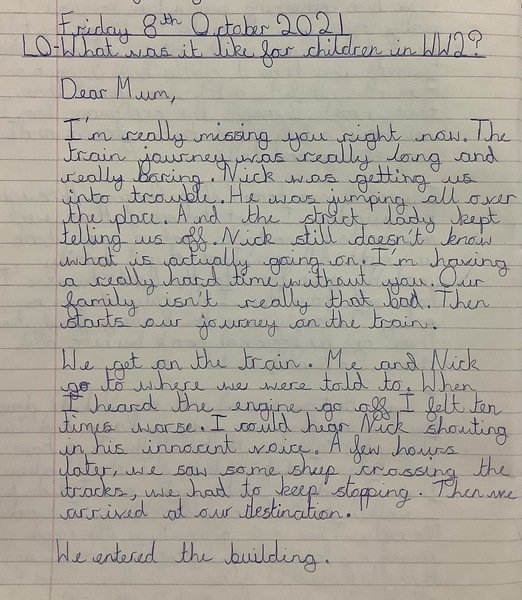 Friday 8th October 2021
LO-What was it like for children in WW2?
Dear Mum,
I'm really missing you right now. The
train journey was really long and
really boring. Nick was getting us
into trouble. He was jumping all over
the place. And the strict lady kept
telling us off. Nick still doesn't know
what is actually going on. I'm having
a really hard time without you. Our
family isn't really that bad. Then
starts our journey on the train.
We get on the train. Me and Nick
go to where we were told to. When
I heard the engine go off I felt ten
times worse. I could hear Nick shouting
in his innocent voice. A few hours
later, we saw some sheep crossing the
tracks, we had to keep stopping. Then we
arrived at our destination.
We entered the building.